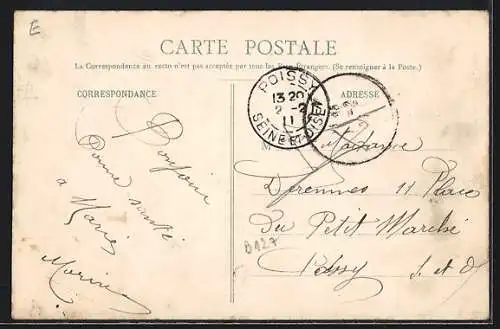 E
CARTE POSTALE
La Correspondance au recto n'est pas acceptée par tous les Pays Étrangers. (Se renseigner à la Poste.)
CORRESPONDANCE
ADRESSE
POISSY
13 20
2 - 2
11
SEINE ET OISE
M
Madame
Derennes 11 Place
Du Petit Marché
Poissy S. et O.
B127
Bonjour
Bonne santé
a Marie